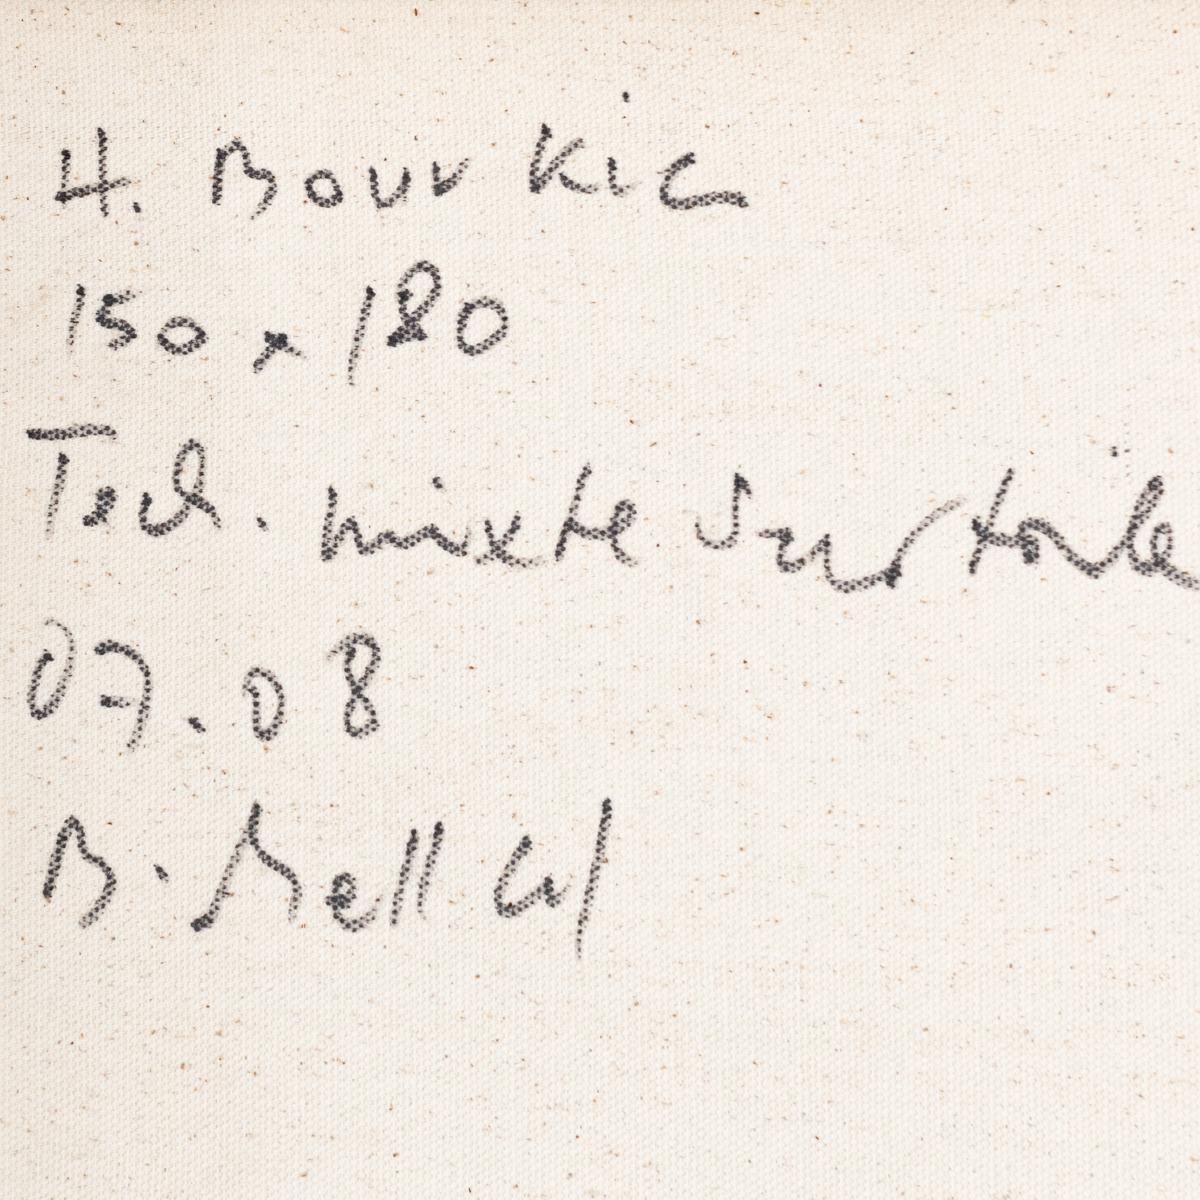 H. Bourkic
150 x 180
Tech. mixte sur toile
07.08
B. Mellal